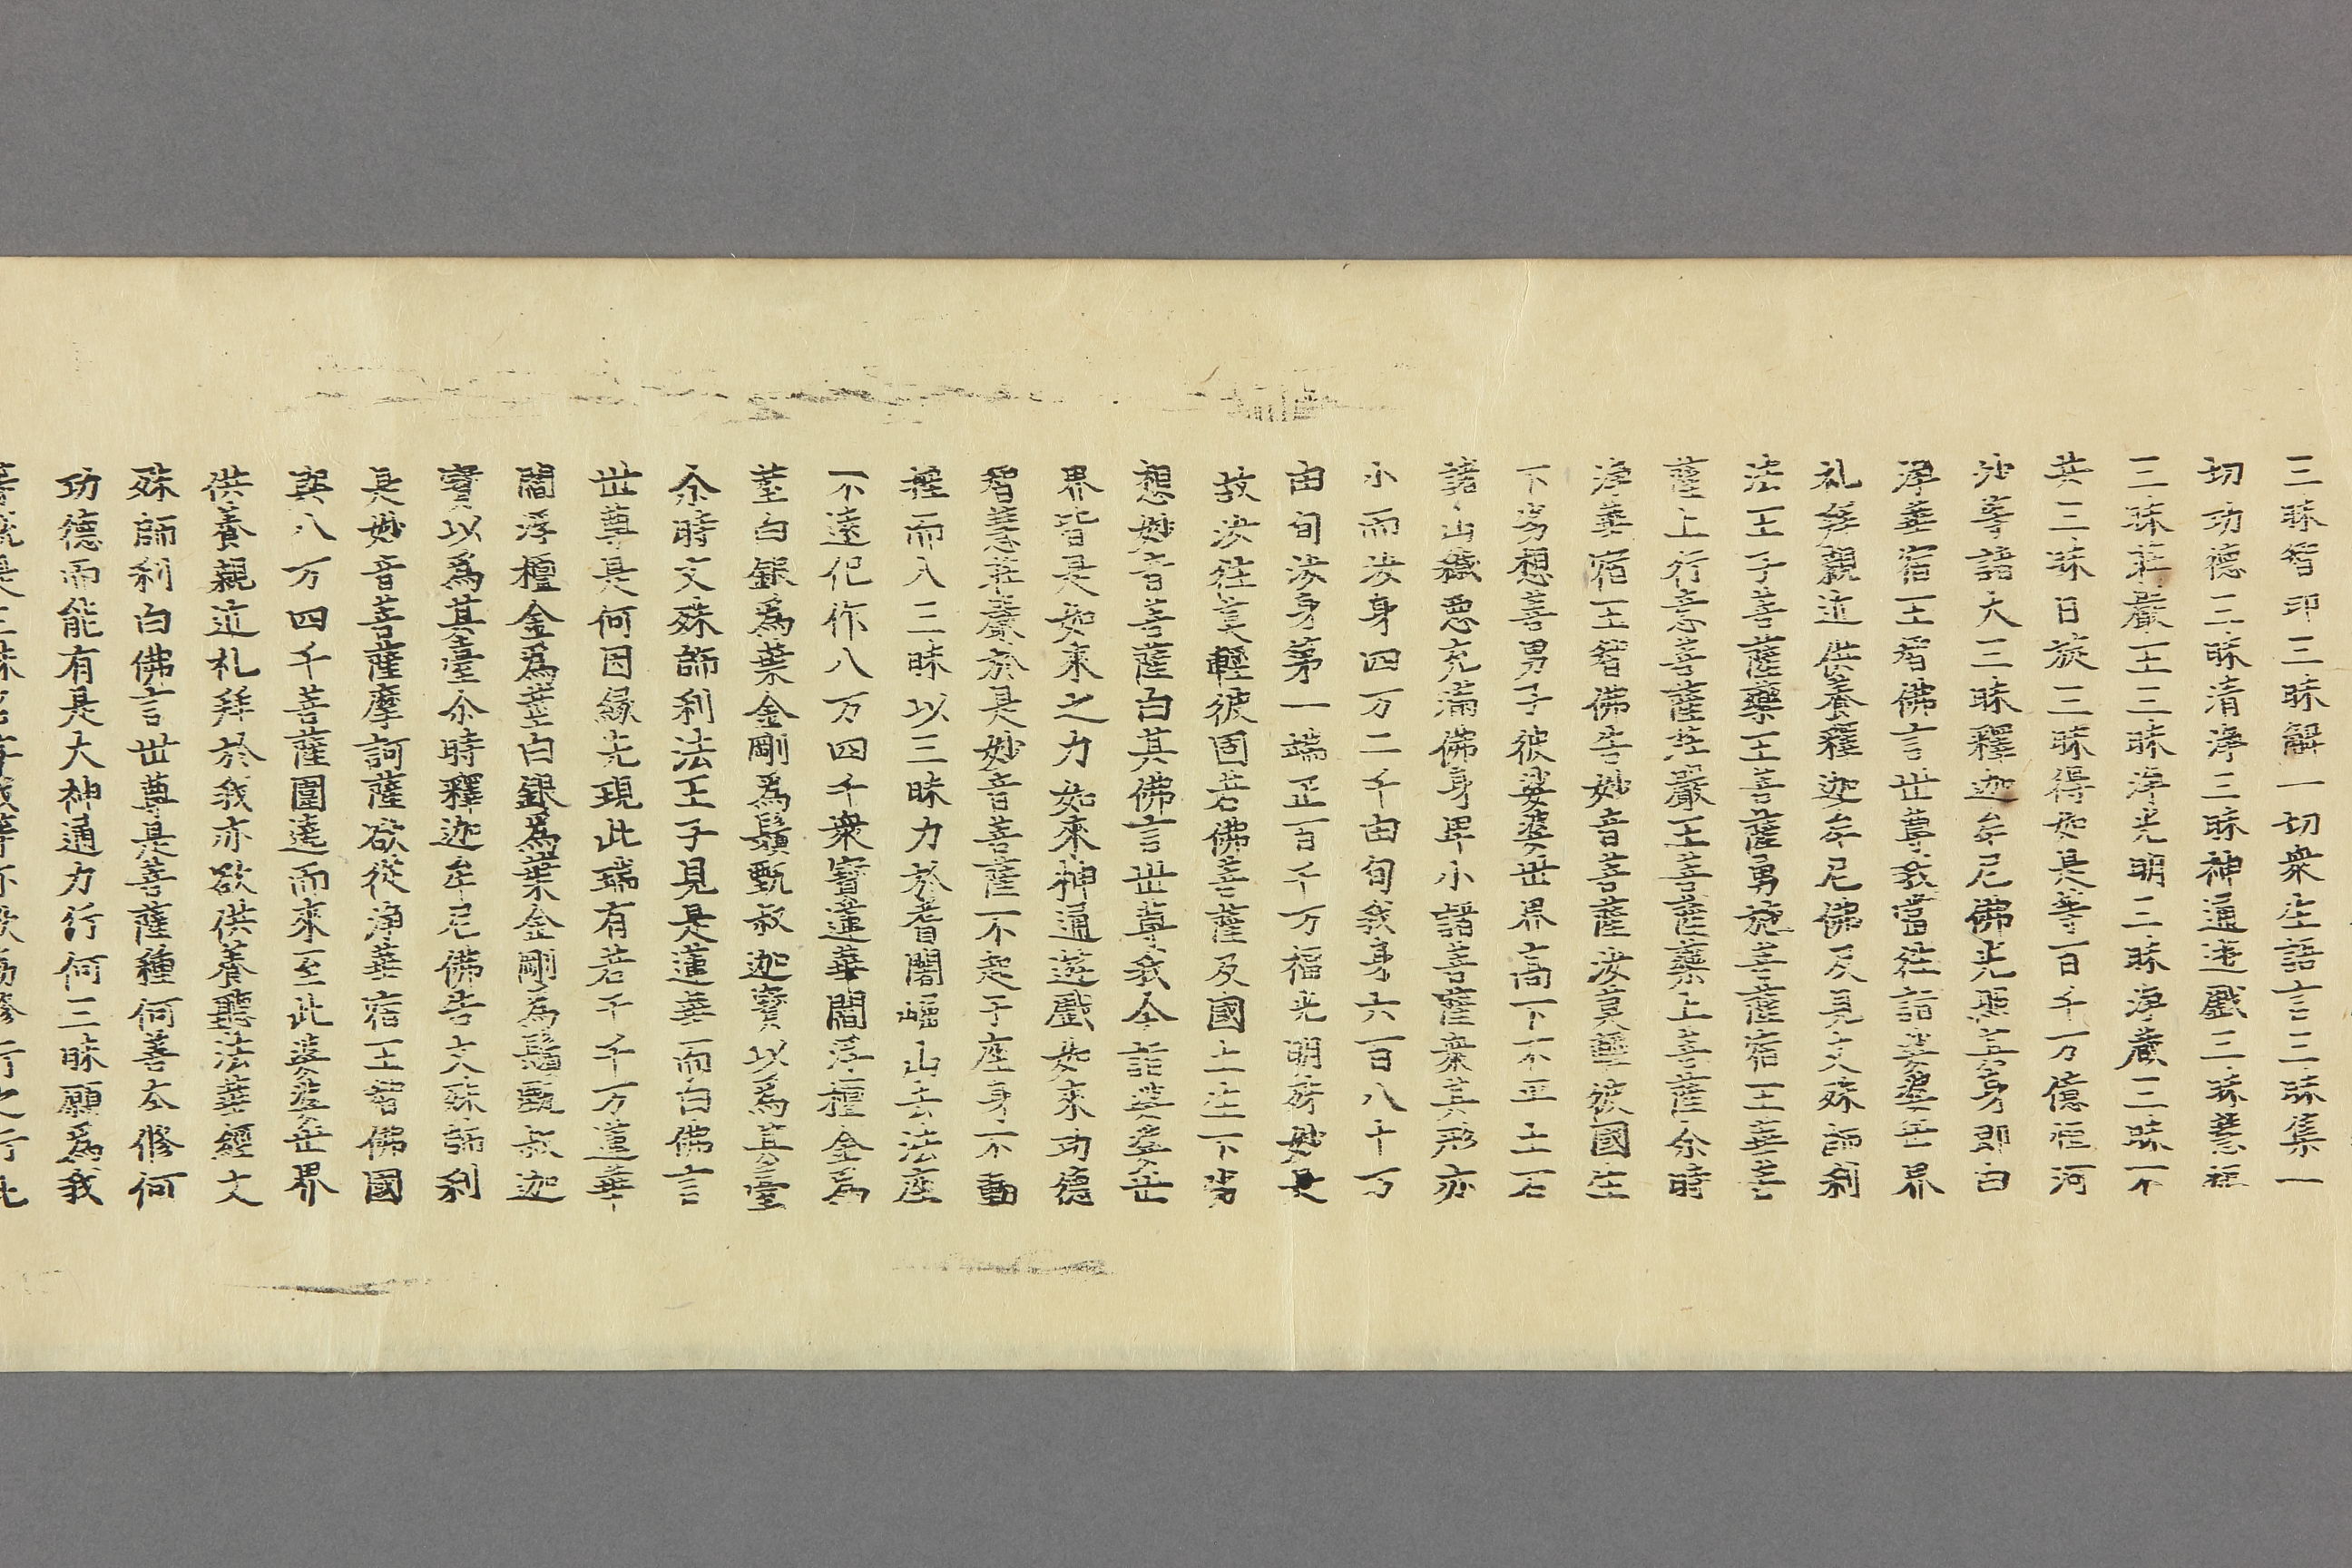 三昧智印三昧解一切衆生語言三昧集一
切功德三昧清淨三昧神通遊戲三昧慧炬
三昧莊嚴王三昧淨光明三昧淨藏三昧不
共三昧日旋三昧得如是等百千万億恒河
沙等諸大三昧釋迦牟尼佛光照其身即白
淨華宿王智佛言世尊我當往詣娑婆世界
礼拜親近供養釋迦牟尼佛及見文殊師利
法王子菩薩藥王菩薩勇施菩薩宿王華菩
薩上行意菩薩莊嚴王菩薩藥上菩薩尒時
淨華宿王智佛告妙音菩薩汝莫輕彼國生
下劣想善男子彼娑婆世界高下不平土石
諸山穢惡充滿佛身卑小諸菩薩衆其形亦
小而汝身四万二千由旬我身六百八十万
由旬汝身第一端正百千万福光明殊妙是
故汝往莫輕彼國若佛菩薩及國土生下劣
想妙音菩薩白其佛言世尊我今詣娑婆世
界皆是如來之力如來神通遊戲如來功德
智慧莊嚴於是妙音菩薩不起于座身不動
搖而入三昧以三昧力於耆闍崛山去法座
不遠化作八万四千衆寶蓮華閻浮檀金爲
莖白銀爲葉金剛爲鬚甄叔迦寶以爲其臺
尒時文殊師利法王子見是蓮華而白佛言
世尊是何因緣先現此瑞有若干千万蓮華
閻浮檀金爲莖白銀爲葉金剛爲鬚甄叔迦
寶以爲其臺尒時釋迦牟尼佛告文殊師利
是妙音菩薩摩訶薩欲從淨華宿王智佛國
與八万四千菩薩圍遶而來至此娑婆世界
供養親近礼拜於我亦欲供養聽法華經文
殊師利白佛言世尊是菩薩種何善本修何
功德而能有是大神通力行何三昧願爲我